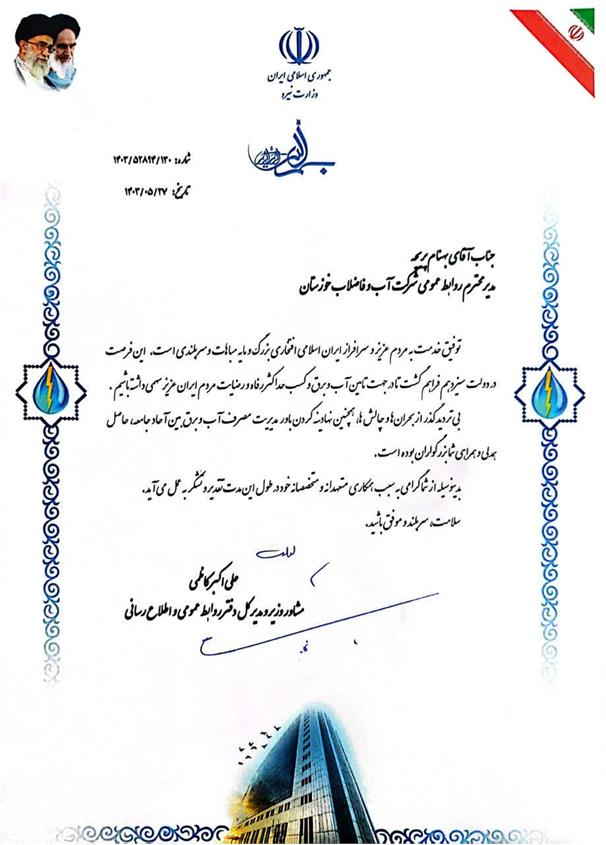 جمهوری اسلامی ایران
وزارت نیرو
شماره: ۱۴۰۳/۵۲۸۹۴/۱۳۰
تاریخ: ۱۴۰۳/۰۵/۲۷
جناب آقای بهنام پریچه
مدیر محترم روابط عمومی شرکت آب و فاضلاب خوزستان
توفیق خدمت به مردم عزیز و سرافراز ایران اسلامی افتخاری بزرگ و مایه مباهات و سربلندی است. این فرصت
در دولت سیزدهم فراهم گشت تا در جهت تامین آب و برق و کسب حداکثر رفاه و رضایت مردم ایران عزیز سهمی داشته باشیم.
بی تردید گذر از بحران ها و چالش ها، همچنین نهادینه کردن باور مدیریت مصرف آب و برق بین آحاد جامعه، حاصل
همدلی و همراهی شما بزرگواران بوده است.
بدینوسیله از شما گرامی به سبب همکاری متعهدانه و متخصصانه خود در طول این مدت تقدیر و تشکر به عمل می آید.
سلامت، سربلند و موفق باشید.
علی اکبر کاظمی
مشاور وزیر و مدیر کل دفتر روابط عمومی و اطلاع رسانی